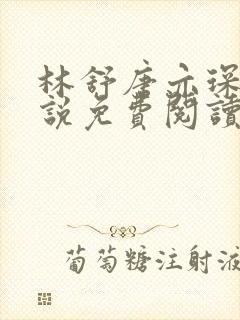 林舒唐亦琛
說免費閱讀
葡萄糖注射液